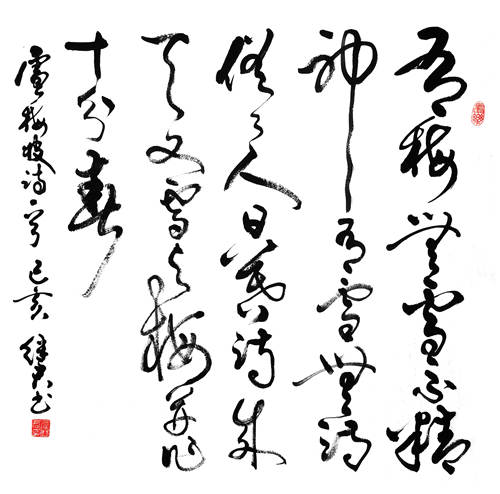 有梅無雪不精
神有雪無诗
俗了人日暮诗成
天又雪与梅並作
十分春
盧梅坡诗一首己亥 书